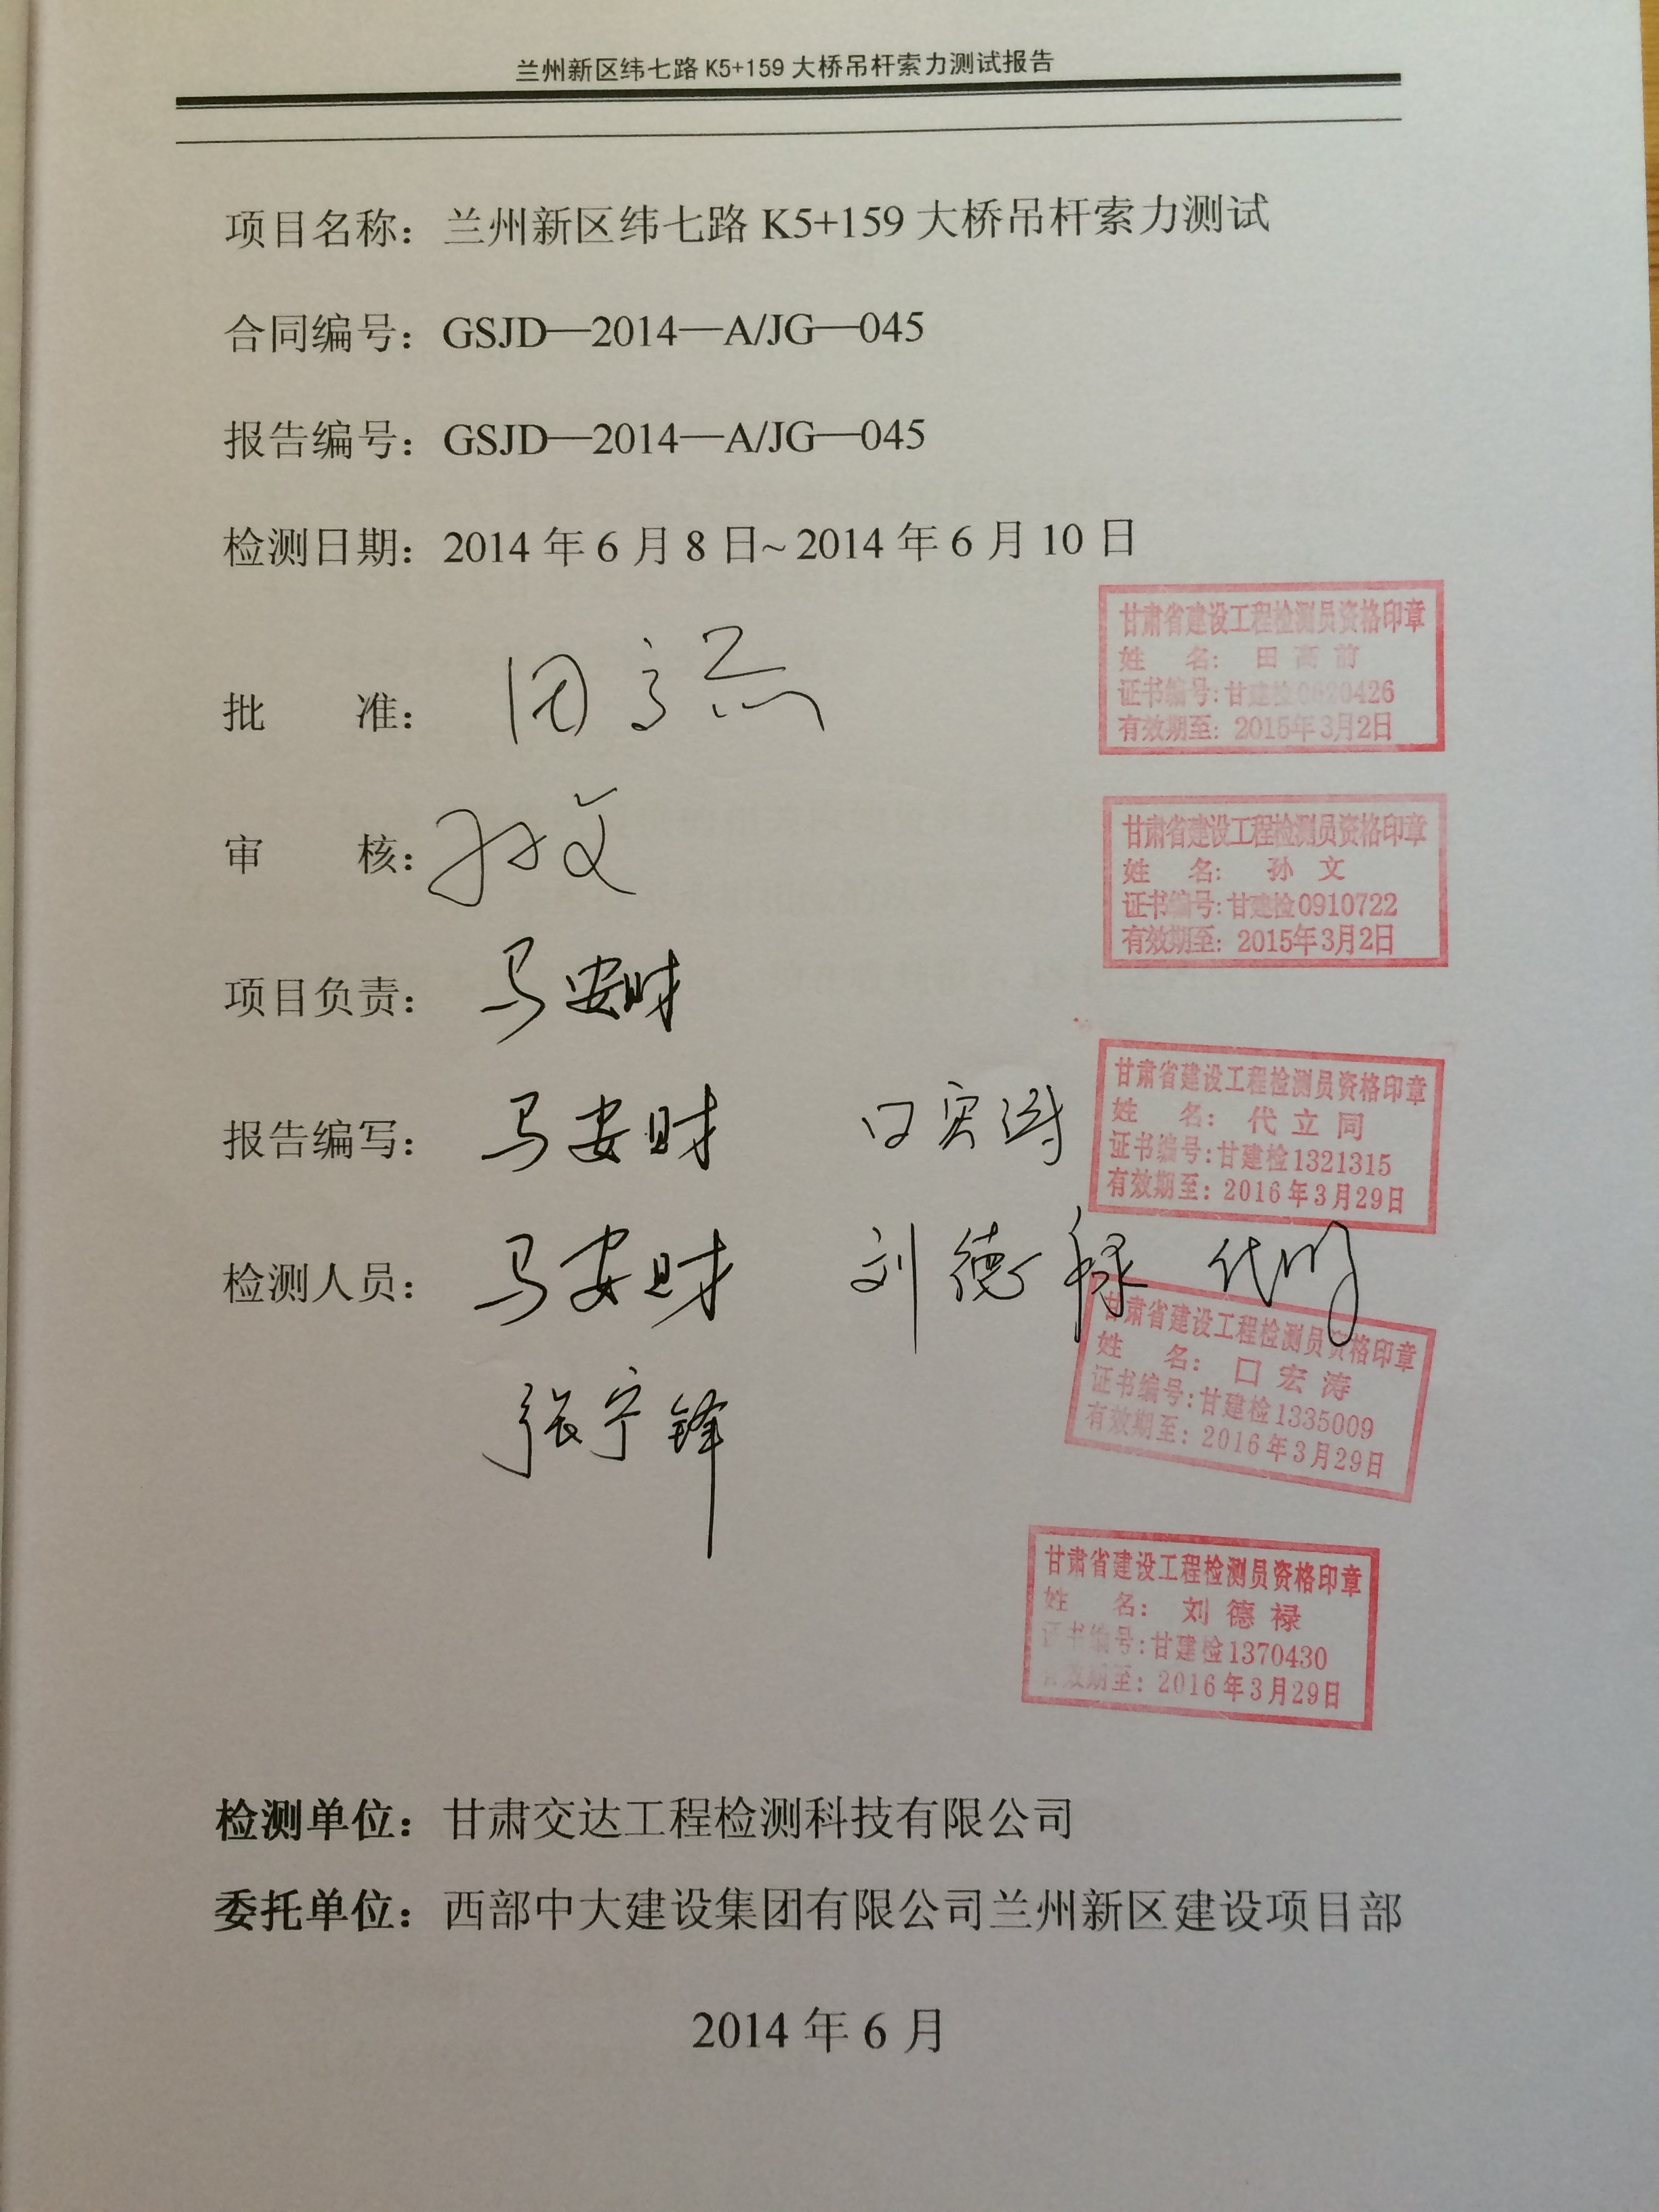 兰州新区纬七路 K5+159 大桥吊杆索力测试报告
项目名称：兰州新区纬七路 K5+159 大桥吊杆索力测试
合同编号：GSJD—2014—A/JG—045
报告编号：GSJD—2014—A/JG—045
检测日期：2014 年 6 月 8 日~ 2014 年 6 月 10 日
甘肃省建设工程检测员资格印章
姓 名：田高前
证书编号：甘建检0820426
有效期至：2015年3月2日
批 准：田高前
甘肃省建设工程检测员资格印章
姓 名：孙 文
证书编号：甘建检0910722
有效期至：2015年3月2日
审 核：孙文
项目负责：马安财
甘肃省建设工程检测员资格印章
姓 名：代立同
证书编号：甘建检1321315
有效期至：2016年3月29日
报告编写：马安财 口宏涛
检测人员：马安财 刘德禄 代立同
甘肃省建设工程检测员资格印章
姓 名：口宏涛
证书编号：甘建检1335009
有效期至：2016年3月29日
张宁锋
甘肃省建设工程检测员资格印章
姓 名：刘德禄
证书编号：甘建检1370430
有效期至：2016年3月29日
检测单位：甘肃交达工程检测科技有限公司
委托单位：西部中大建设集团有限公司兰州新区建设项目部
2014 年 6 月